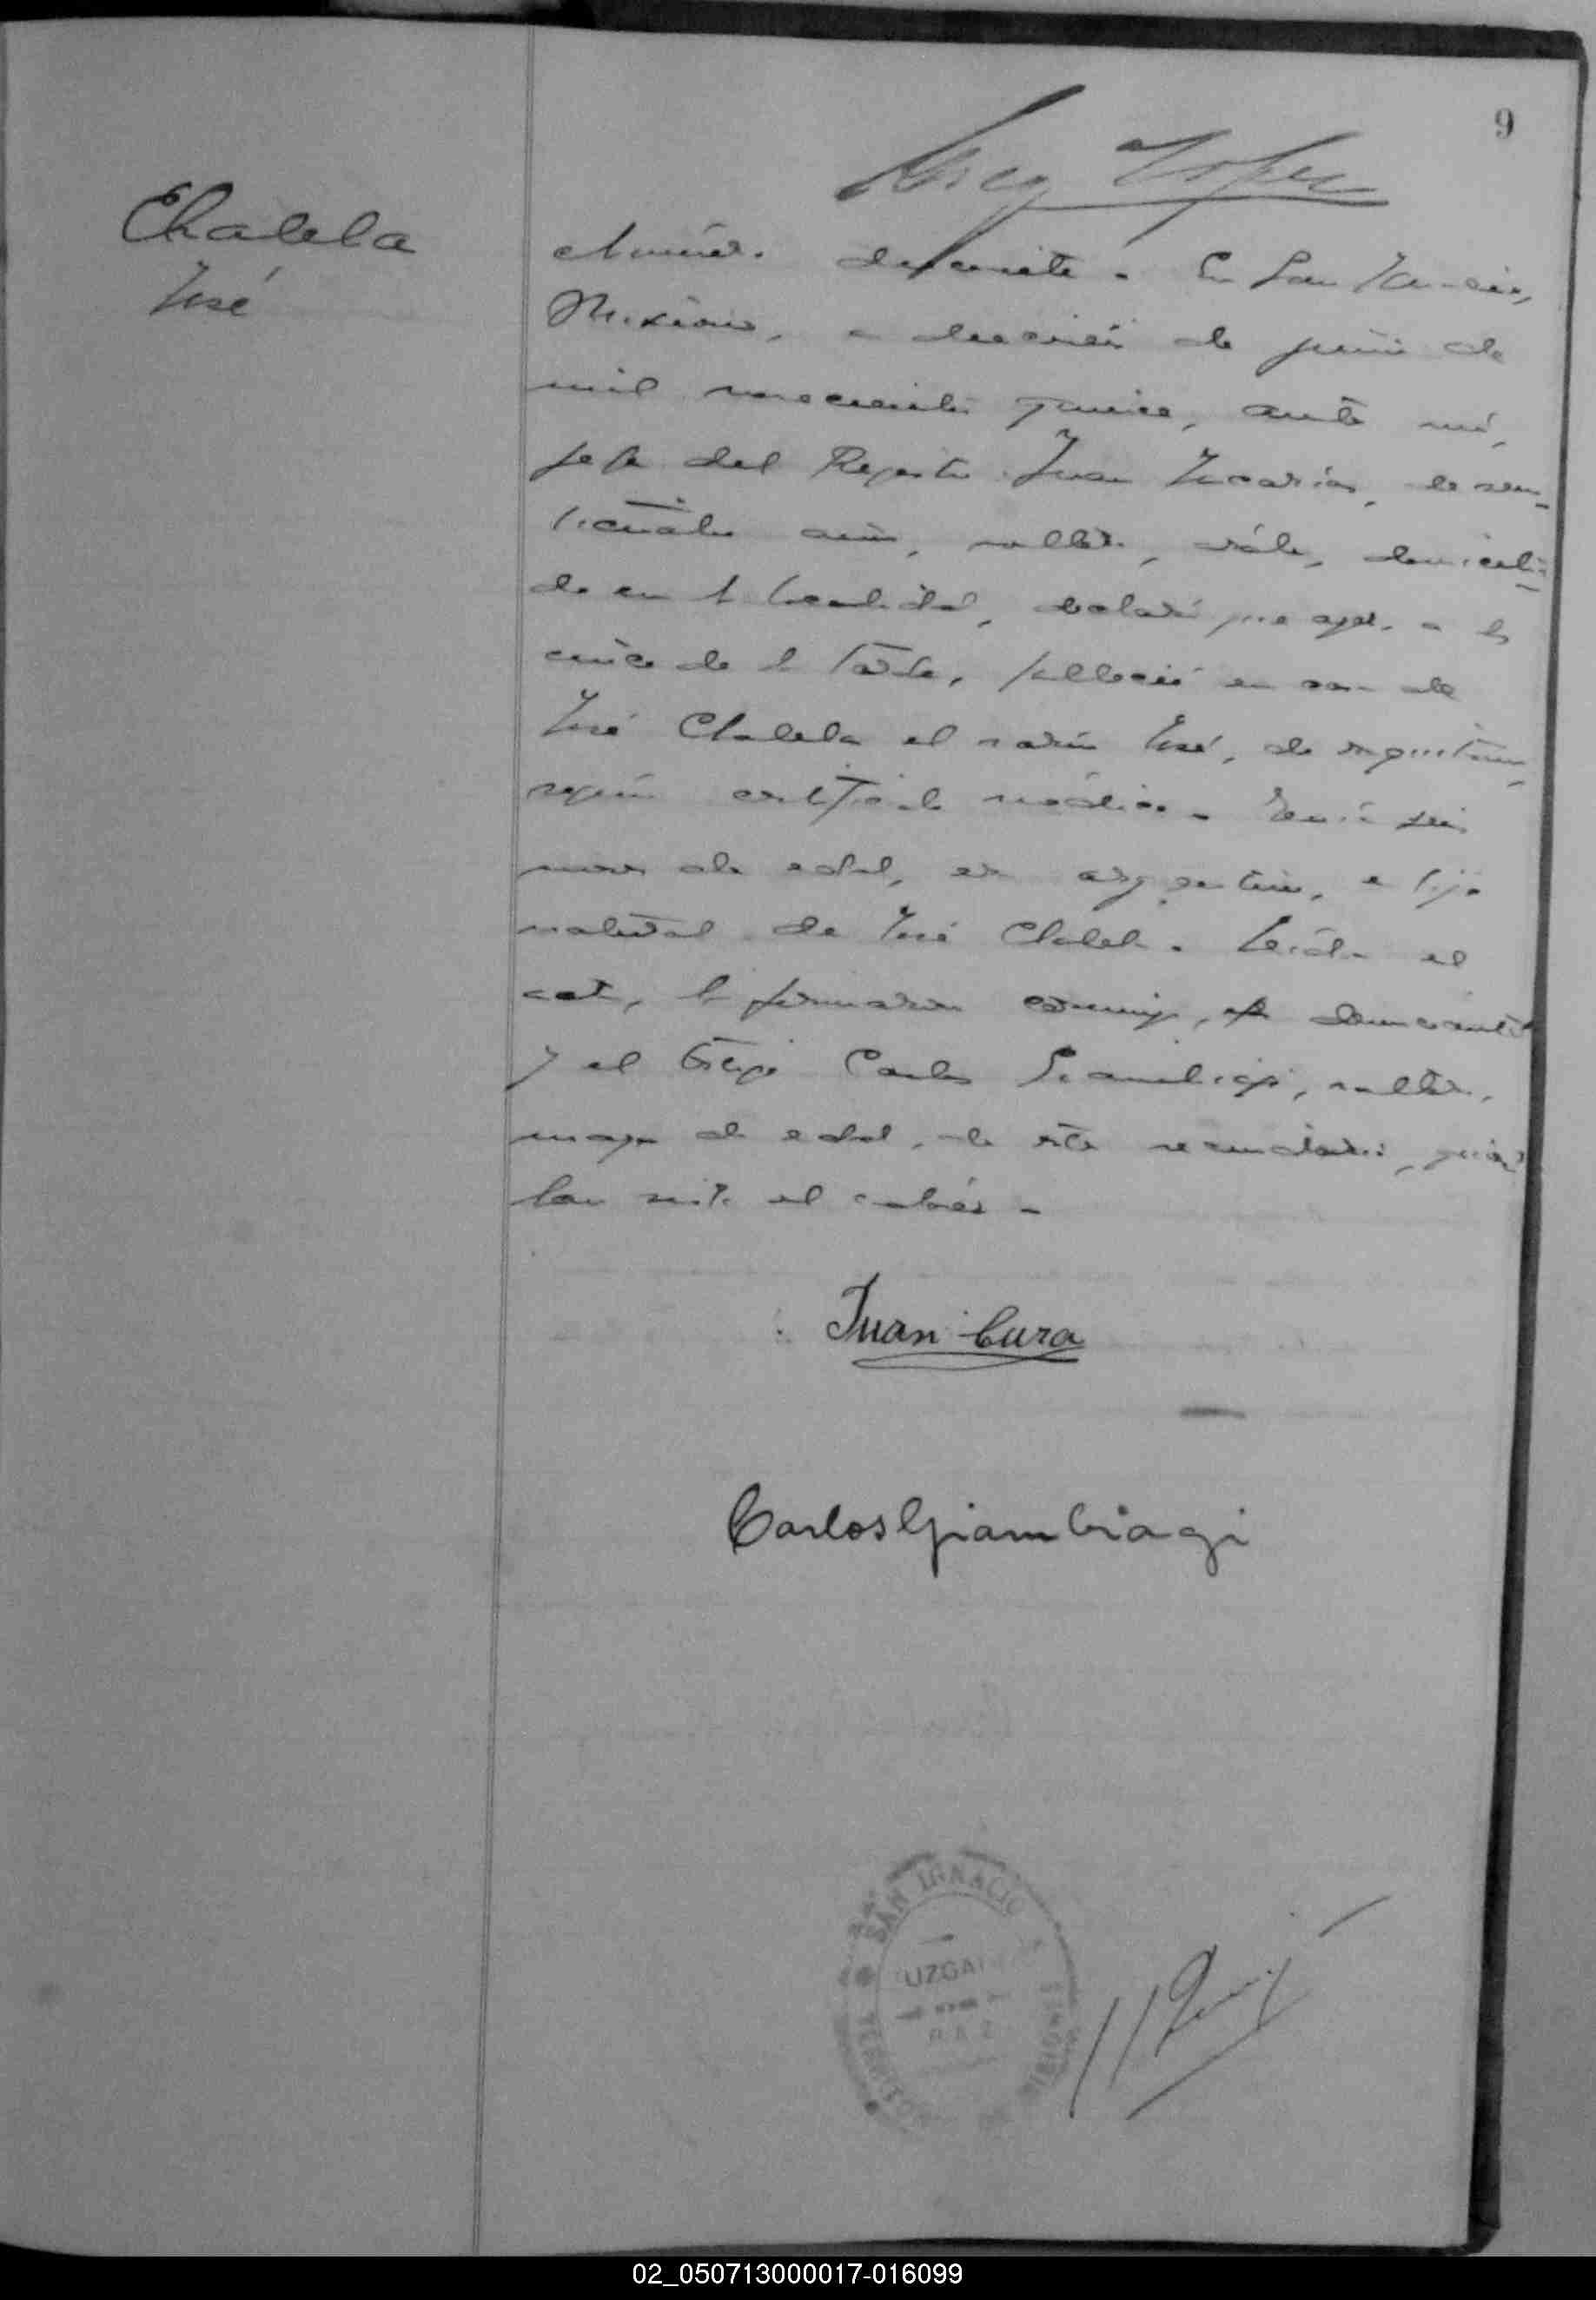 9
Chalela
José
Número diecisiete. En San Ignacio,
Misiones, a dieciséis de junio de
mil novecientos quince, ante mí,
jefe del Registro Juan
años, soltero, domicilia
do en la localidad, declaró que ayer a las
cinco de la tarde, falleció en casa de
José Chalela el varón José, de
según certificado médico. Tenía seis
meses de edad, era argentino, e hijo
natural de José Chalela. Leída el
acta, la firmaron conmigo, el denunciante
y el testigo Carlos Giambiagi, soltero,
mayor de edad, de este vecindario, quien
han visto el cadáver.
Juan Cura
Carlos Giambiagi
SAN IGNACIO
UZGA
PAZ
02_050713000017-016099